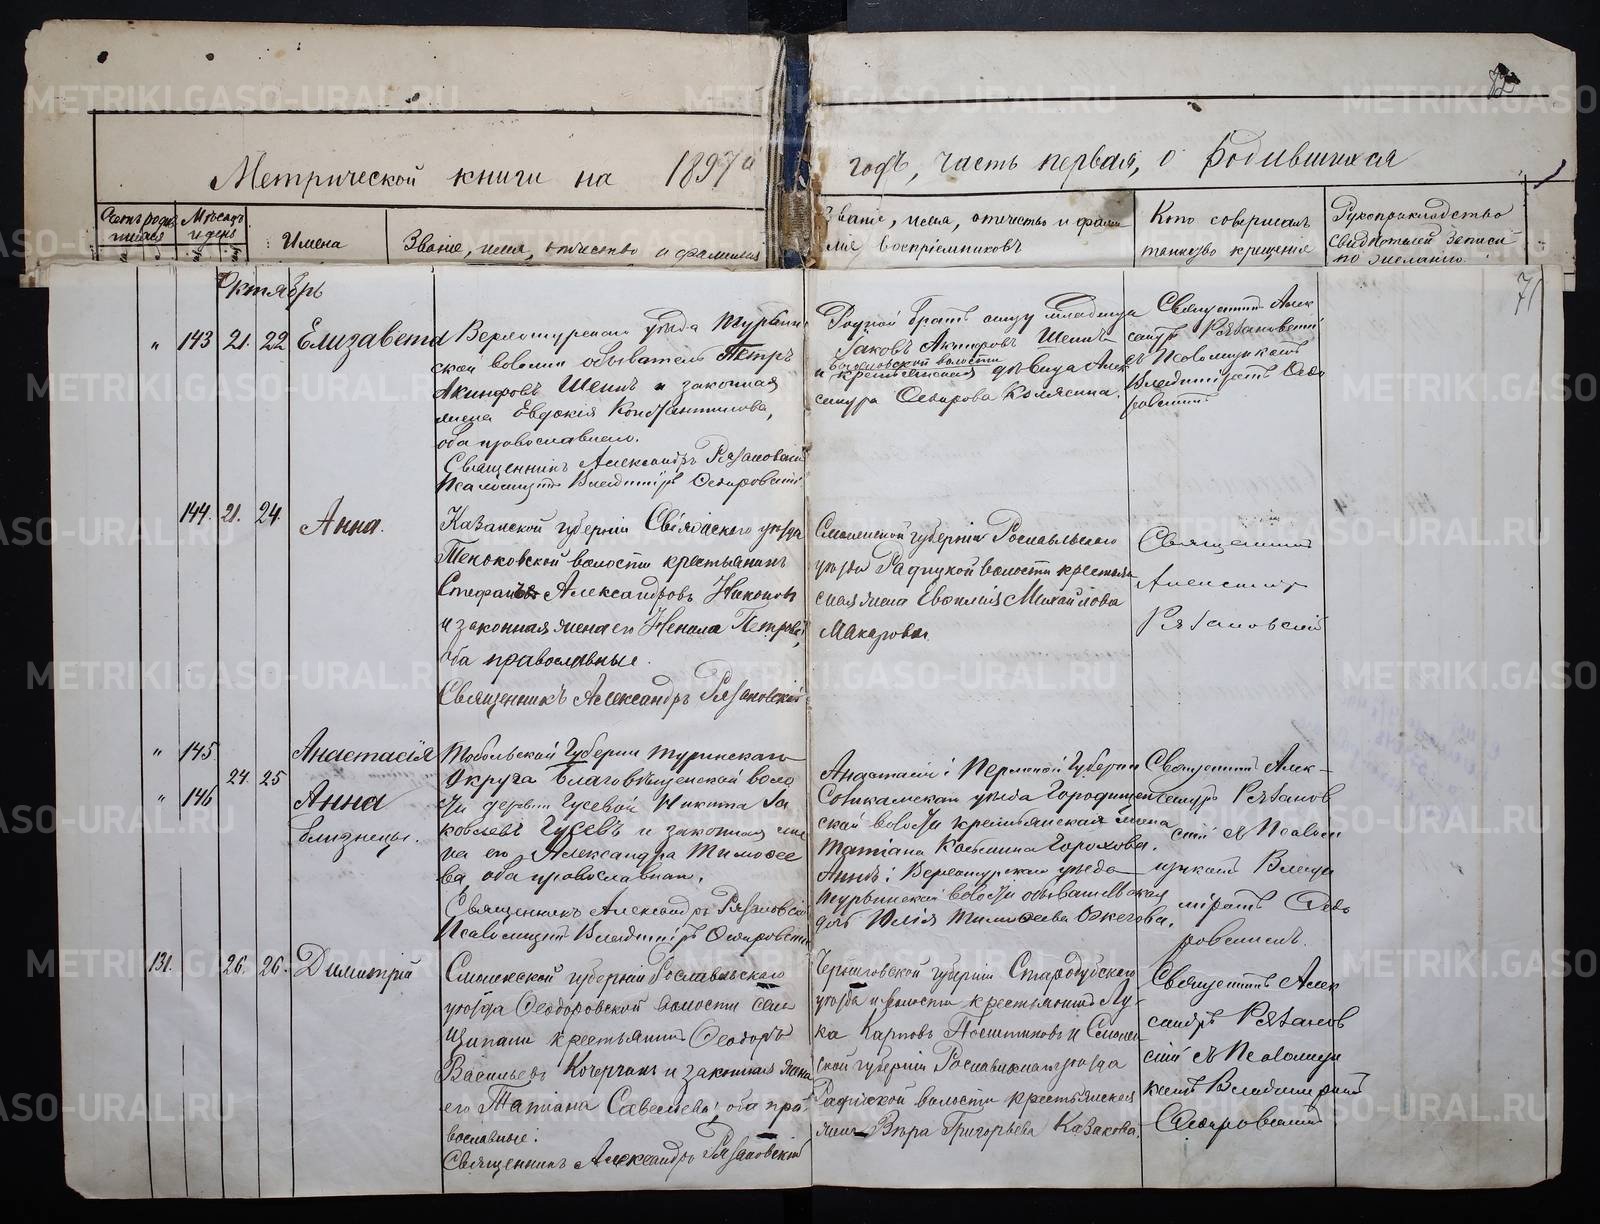 72
Метрической книги на 1897й годъ, часть первая, о родившихся
Счетъ родив-
шихся
Мѣсяцъ
и день
Имена
Званіе, имя, отчество и фамилія
Званіе, имя, отчество и фами-
лія воспріемниковъ
Кто совершалъ
таинство крещенія
Рукоприкладство
свидѣтелей записи
по желанію
71
Октябрь
" 143 21. 22 Елизавета
Верхотурскаго уѣзда Турьин-
ской волости обыватель Петръ
Акинфовъ Шеинъ и законная
жена Евдокія Константинова,
оба православные.
Священникъ Александръ Рязановскій
Псаломщикъ Владиміръ Ѳедоровскій
Родной братъ отцу младенца
Іаковъ Акинфовъ Шеинъ
волости
и крестьянская дѣвица Алек-
сандра Ѳедорова Колясина.
Священникъ Алек-
сандръ Рязановскій
съ Псаломщикомъ
Владиміромъ Ѳедо-
ровскимъ
144. 21. 24. Анна.
Казанской губерніи Свіяжскаго уѣзда
волости крестьянинъ
Стефанъ Александровъ Никоновъ
и законная жена его Ненила Петрова,
оба православные.
Священникъ Александръ Рязановскій
Смоленской губерніи Рославльскаго
уѣзда волости крестьян-
ская жена Евфимія Михайлова
Макарова
Священникъ
Александръ
Рязановскій
" 145 Анастасія
24. 25
" 146 Анна
близнецы.
Тобольской Губерніи Туринскаго
Округа Благовѣщенской воло-
сти деревни Гусевой Никита Іа-
ковлевъ Гусевъ и законная же-
на его Александра Тимоѳее-
ва, оба православные.
Священникъ Александръ Рязановскій
Псаломщикъ Владиміръ Ѳедоровскій
Анастасіи: Пермской Губерніи
Соликамскаго уѣзда Городищен-
ской волости крестьянская жена
Татіана Косьмина Горохова.
Анны: Верхотурскаго уѣзда
Турьинской волости обывательская
дочь Юлія Тимоѳеева Ожегова.
Священникъ Алек-
сандръ Рязанов-
скій съ Псалом-
щикомъ Влади-
міромъ Ѳедо-
ровскимъ.
131. 26. 26. Димитрій
Смоленской губерніи Рославльскаго
уѣзда Ѳеодоровской волости села
крестьянинъ Ѳеодоръ
Васильевъ Кочергинъ и законная жена
его Татіана Савельева, оба пра-
вославные.
Священникъ Александръ Рязановскій
Черниговской губерніи Стародубскаго
уѣзда и волости крестьянинъ Лу-
ка Карповъ и Смолен-
ской губерніи Рославльскаго уѣзда
волости крестьянская
жена Вѣра Григорьева Казакова.
Священникъ Алек-
сандръ Рязанов-
скій съ Псаломщи-
комъ Владиміромъ
Ѳедоровскимъ
METRIKI.GASO-URAL.RU